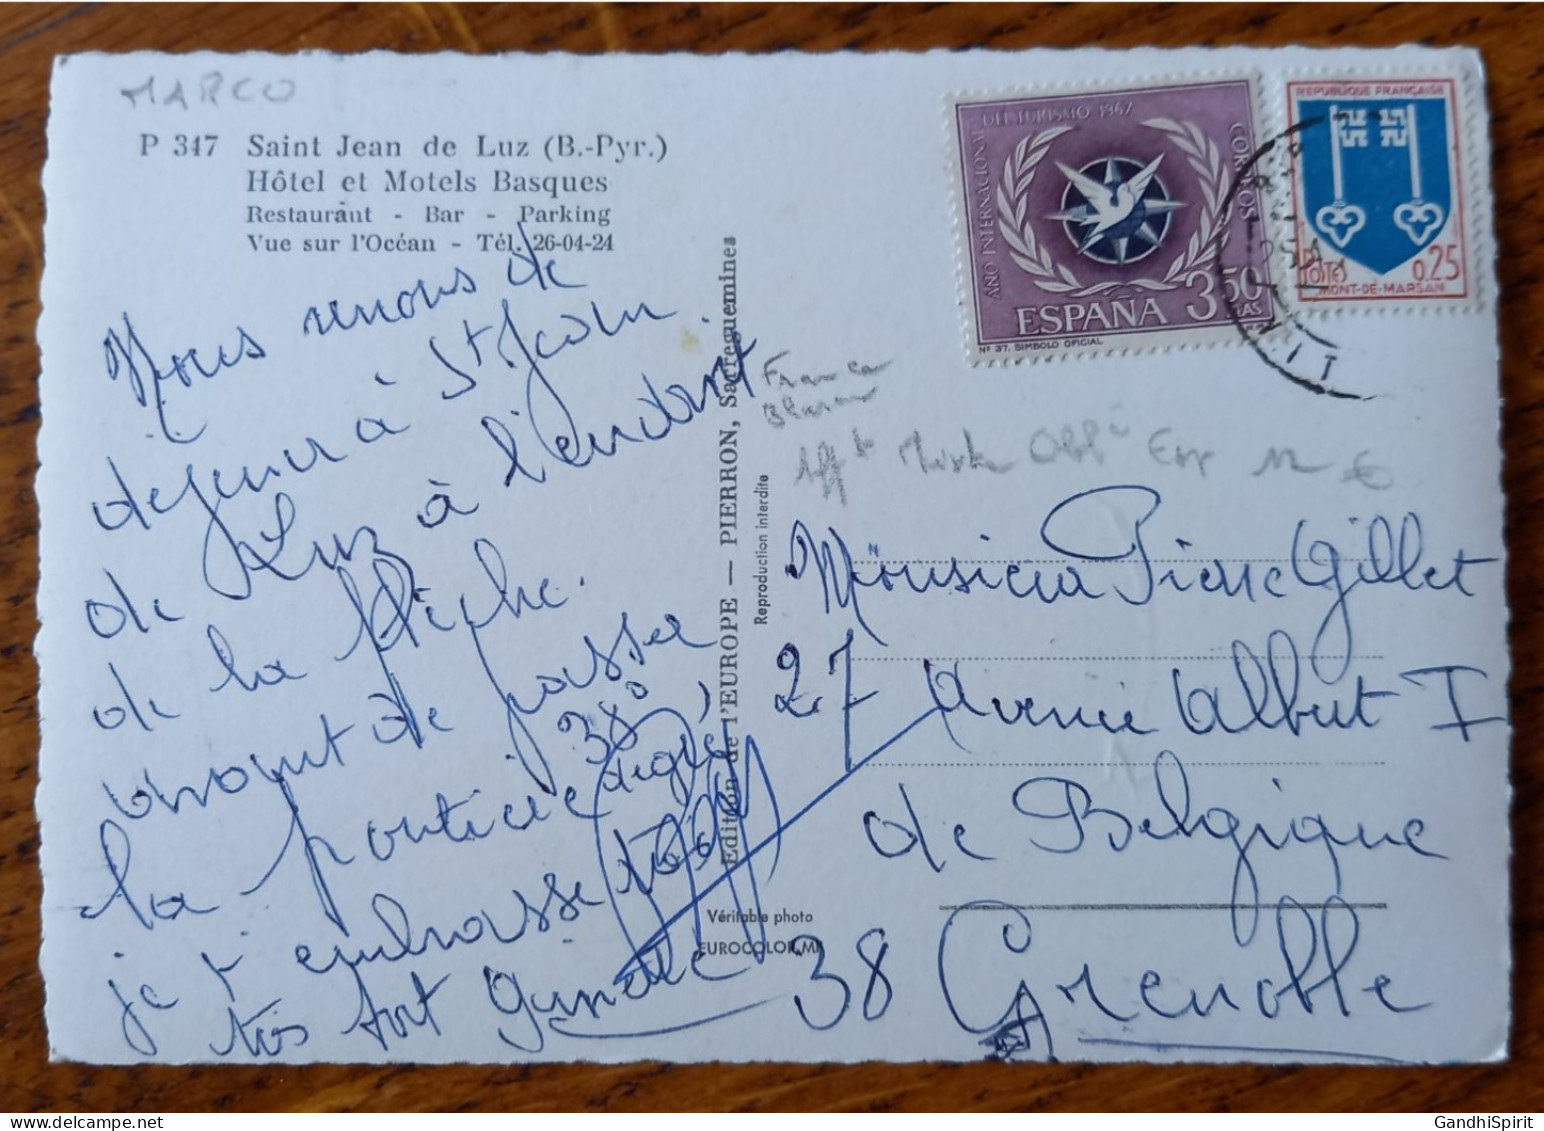 MARCO
P 347 Saint Jean de Luz (B.-Pyr.)
Hôtel et Motels Basques
Restaurant - Bar - Parking
Vue sur l'Océan - Tél. 26-04-24
Nous venons de
dejeuner à St Jean
de Luz à l'endroit
de la flèche.
avant de passer
la frontière
je t'embrasse
très fort
38°
Edition de l'EUROPE — PIERRON, Sarreguemines
Reproduction interdite
Véritable photo
EUROCOLOR.MF
AÑO INTERNACIONAL DEL TURISMO 1967
CORREOS
ESPAÑA 3,50 PTAS
Nº 37. SIMBOLO OFICIAL
REPUBLIQUE FRANÇAISE
POSTES 0,25
MONT-DE-MARSAN
Afft Mixte
Monsieur Pierre Gillet
27 Avenue Albert I
de Belgique
38 Grenoble
GandhiSpirit